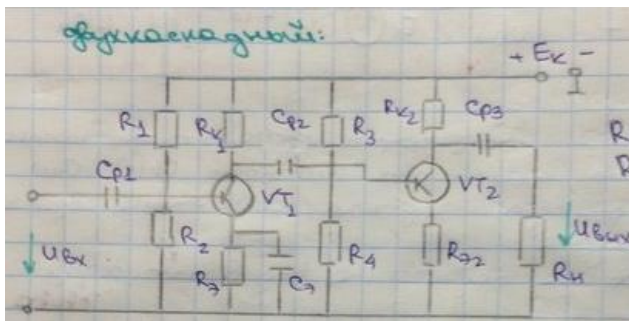 двухкаскадный:
+ Eк −
R1 Rк1 Cр2 R3 Rк2 Cр3
R
R
Cр1 VT1 VT2
Uвх R2 Rэ Cэ R4 Rэ2 Rн Uвых